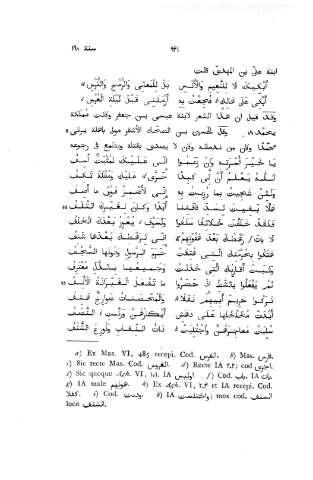 سنة ١٩٨ ٩٤١
ابنة على بن المهدى قالت
أبكيك لا للنعيم والأنس بل للمعالى والرمح والفرس
أبكى على هالك فجعت به أرملنى قبل ليلة العرس
وقد قيل ان هذا الشعر لابنة عيسى بن جعفر وكانت مملكة
بمحمد وقال الحسين بن الضحاك الأشقر مولى باهلة يرثى
محمدا وكان من ندمائه وكان لا يصدق بقتله ويطمع فى رجوعه
يا خير أسرته وإن زعموا انى عليك لمثبت أسف
الله يعلم أن لى كبدا حرى عليك ومقلة تكف
ولئن شجيت بما رزئت به انى لأضمر فوق ما أصف
هلا بقيت لسد فاقتنا أبدا وكان لغيرك التلف
فلقد خلفت خلائفا سلفوا ولسوف يعوز بعدك الخلف
لا بات رهطك بعد هفوتهم انى لرهطك بعدها شنف
هتكوا بحرمتك التى هتكت حرم الرسول ودونها السجف
وثبت أقاربك التى خذلت وجميعها بالذل معترف
لم يفعلوا بالشط اذ حضروا ما تفعل الغيرانة الأنف
تركوا حريم أبيهم نفلا والمحصنات صوارخ هتف
أبدت مخلخلها على دهش أبكارهن ورنت النصف
سلبت معاجرهن واجتليت ذات النقاب ونوزع الشنف
a) Ex Mas. VI, 485 recepi. Cod. الفرس. b) Mas. فارس.
c) Sic recte Mas. Cod. الفروس. d) Recte IA ٢٠٢; cod احرى.
e) Sic quoque Agh. VI, IA اوليس. f) Cod. باب, IA بات.
g) IA male هولهم. h) Ex Agh. VI, ٢٠٣ et IA recepi. Cod.
i) Cod. ودنت. k) IA واختلست; mox cod. السنف
loco الشنف.